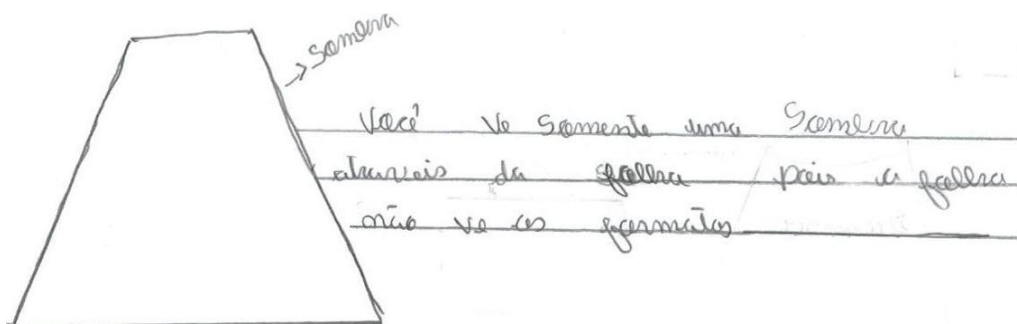 → Sombra
Você ve somente uma Sombra
atraveis da folha pois a folha
não ve os formatos